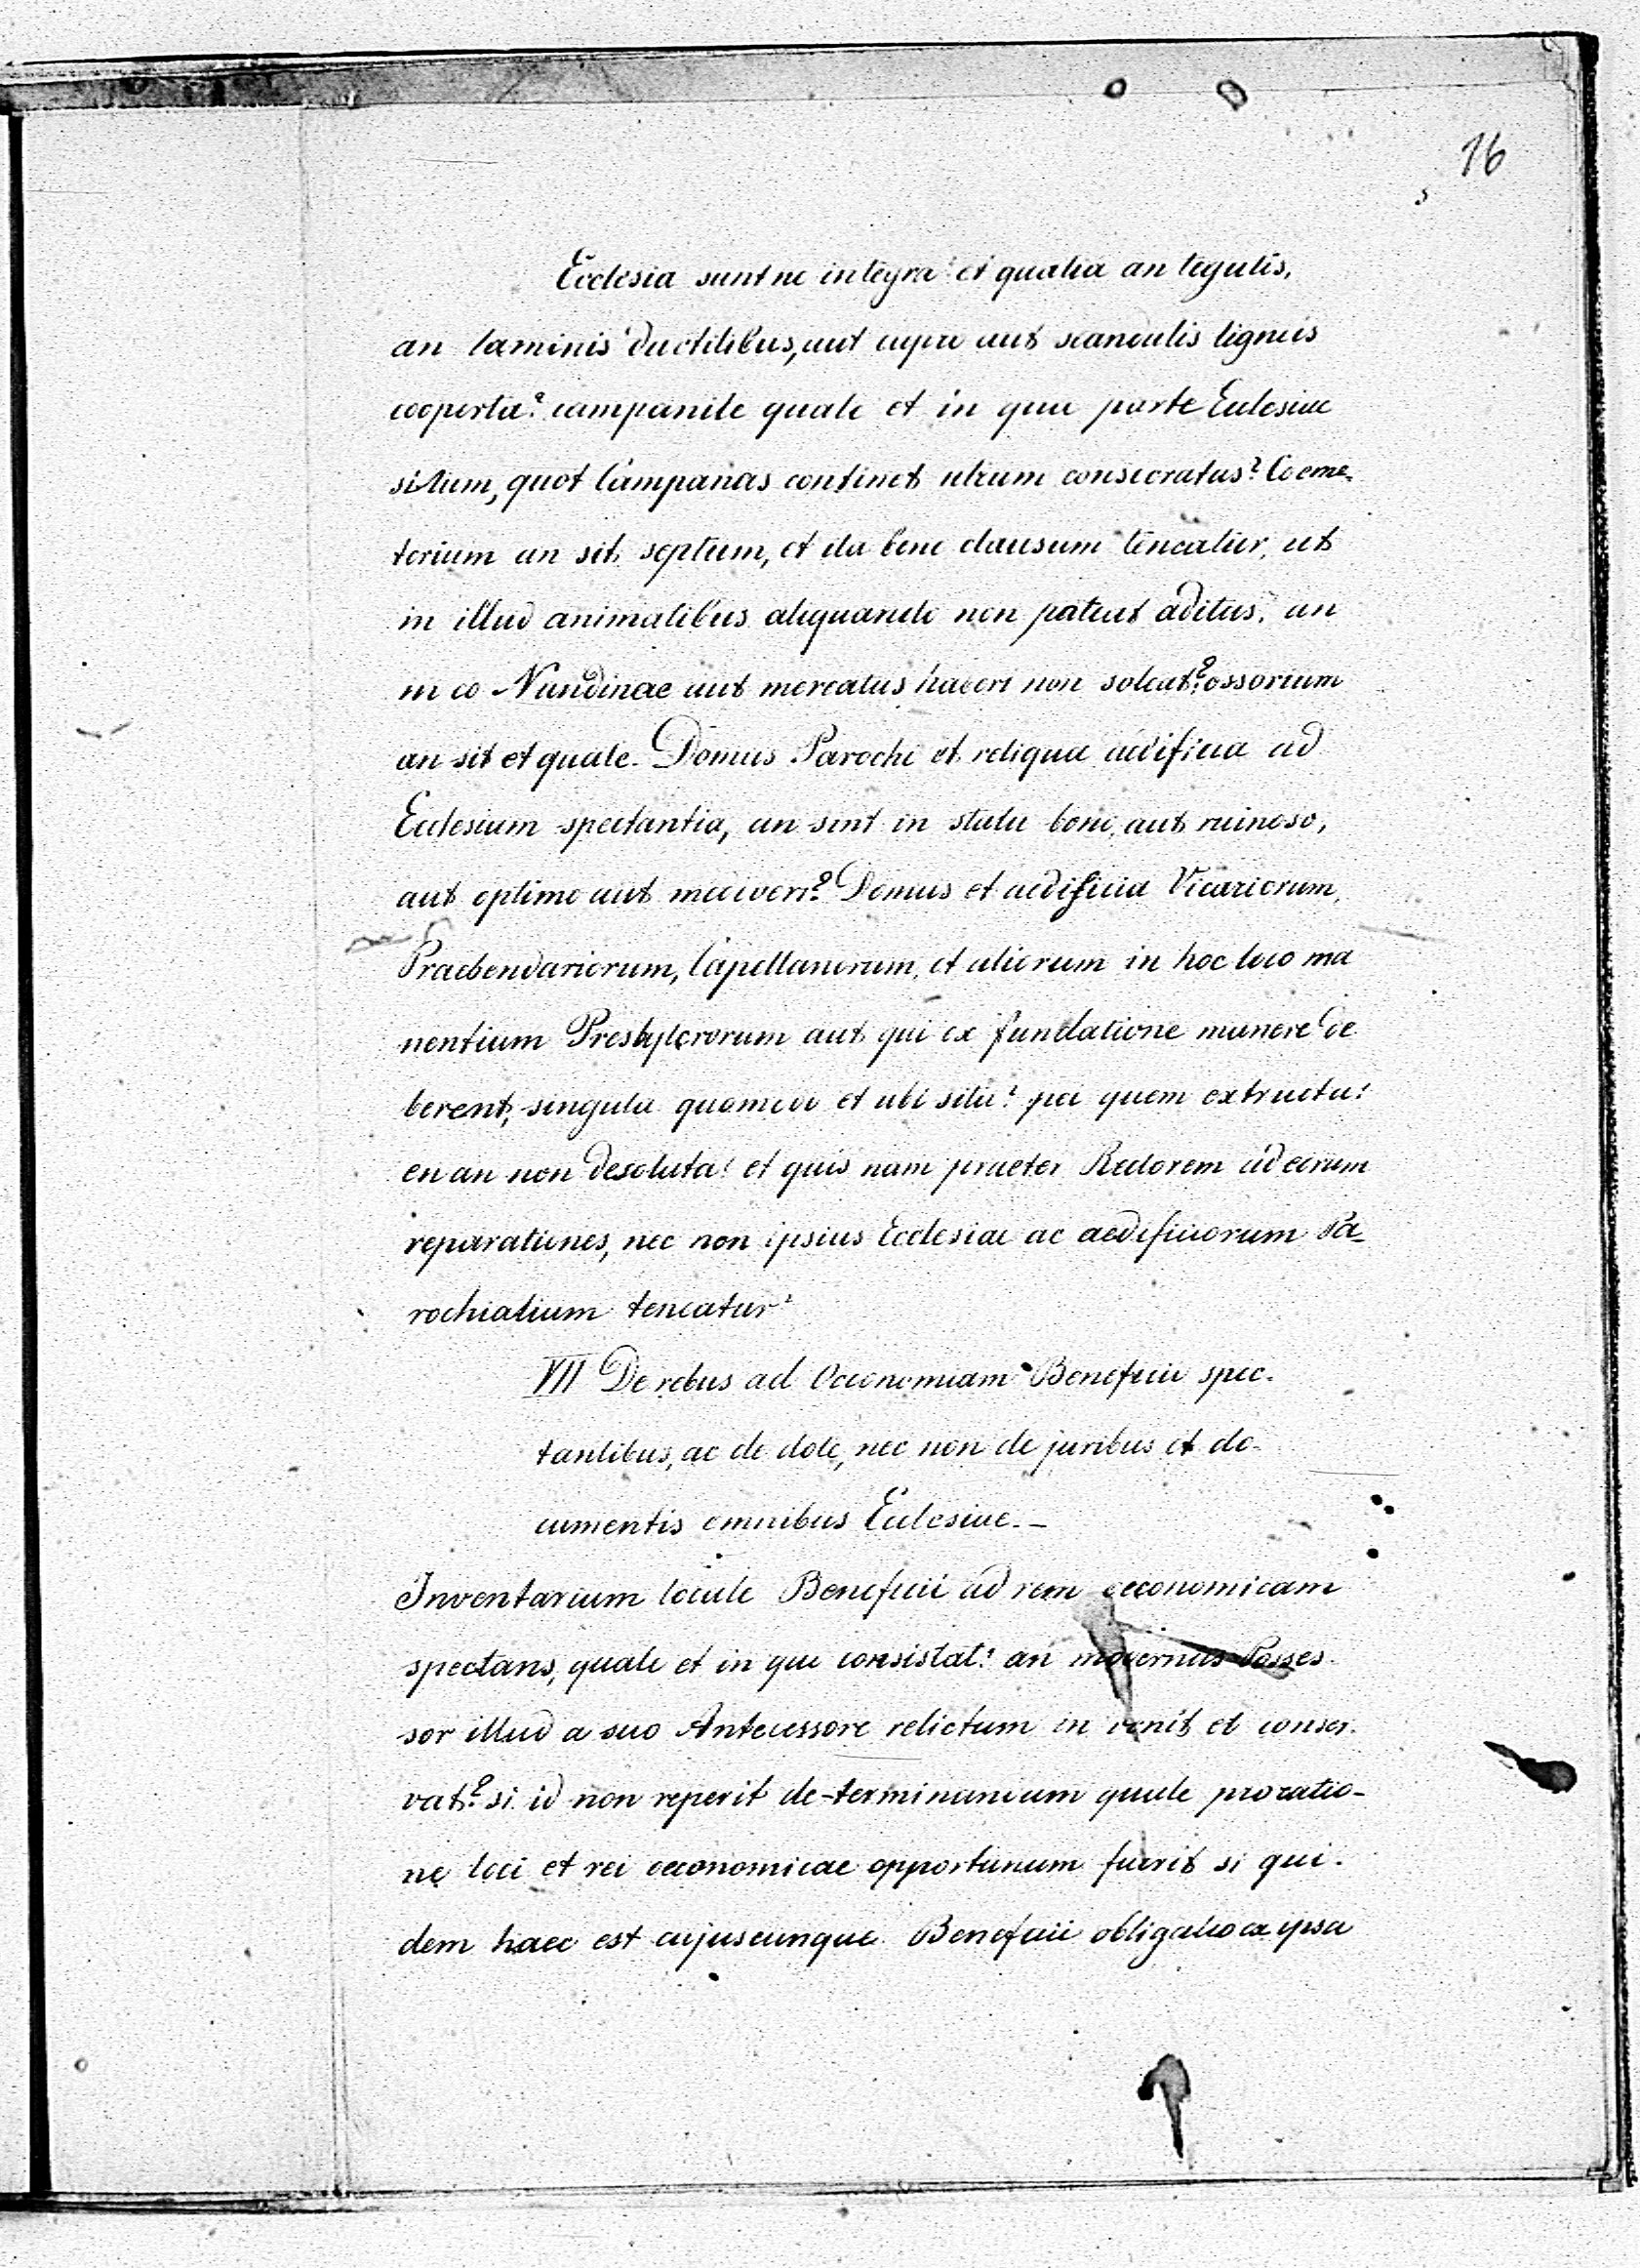 16
Ecclesia suntne integra et qualia an tegulis,
an laminis ductilibus, aut cupro aut scandulis ligneis
cooperta? campanile quale et in qua parte Ecclesiae
situm, quot Campanas continet utrum consecratas? Coeme-
terium an sit septum, et ita bene clausum teneatur, ut
in illud animalibus aliquando non pateat aditus, an
in eo Nundinae aut mercatus haberi non soleat? ossorium
an sit et quale. Domus Parochi et reliqua aedificia ad
Ecclesiam spectantia, an sint in statu bono, aut ruinoso,
aut optimo aut mediocri? Domus et aedificia Vicariorum,
Praebendariorum, Capellanorum, et aliorum in hoc loco ma
nentium Presbyterorum aut qui ex fundatione manere de
berent, singula quomodo et ubi sita? per quem extructa?
en an non desoluta? et quis nam praeter Rectorem ad eorum
reparationes, nec non ipsius Ecclesiae ac aedificiorum Pa-
rochialium teneatur?
VII De rebus ad Oeconomiam Beneficii spec-
tantibus, ac de dote, nec non de juribus et do-
cumentis omnibus Ecclesiae. -
Inventarium locale Beneficii ad rem oeconomicam
spectans, quale et in quo consistat? an modernus Posses
sor illud a suo Antecessore relictum in venit et conser-
vat? si id non reperit de-terminandum quale pro ratio-
ne loci et rei oeconomicae opportunum fuerit si qui-
dem haec est cujuscunque Beneficii obligatio ex ipsa